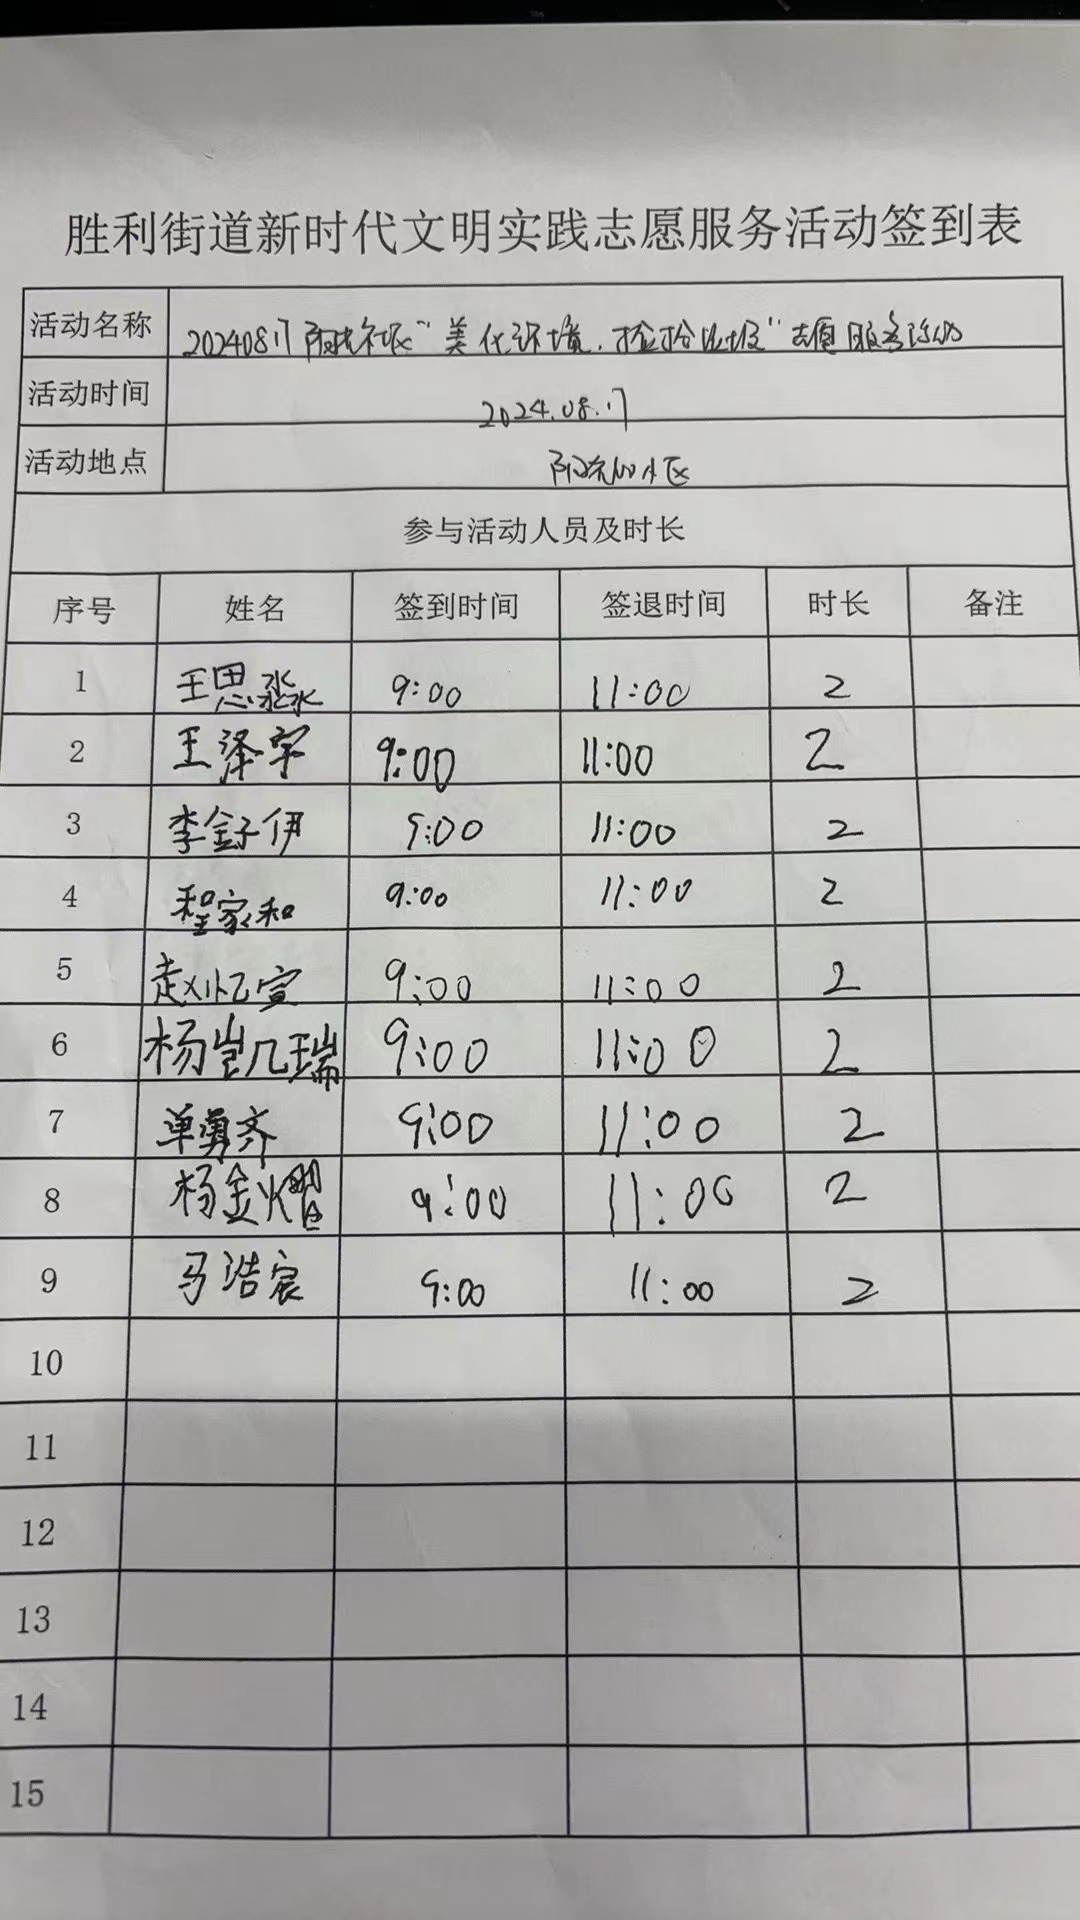 胜利街道新时代文明实践志愿服务活动签到表
活动名称 20240817阳光社区“美化环境，捡拾垃圾”志愿服务活动
活动时间 2024.08.17
活动地点 阳光小区
参与活动人员及时长
序号 姓名 签到时间 签退时间 时长 备注
1 王思淼 9:00 11:00 2
2 王泽宇 9:00 11:00 2
3 李金子伊 9:00 11:00 2
4 程家和 9:00 11:00 2
5 赵忆宣 9:00 11:00 2
6 杨凯瑞 9:00 11:00 2
7 单勇齐 9:00 11:00 2
8 杨金 9:00 11:00 2
9 马浩宸 9:00 11:00 2
10
11
12
13
14
15